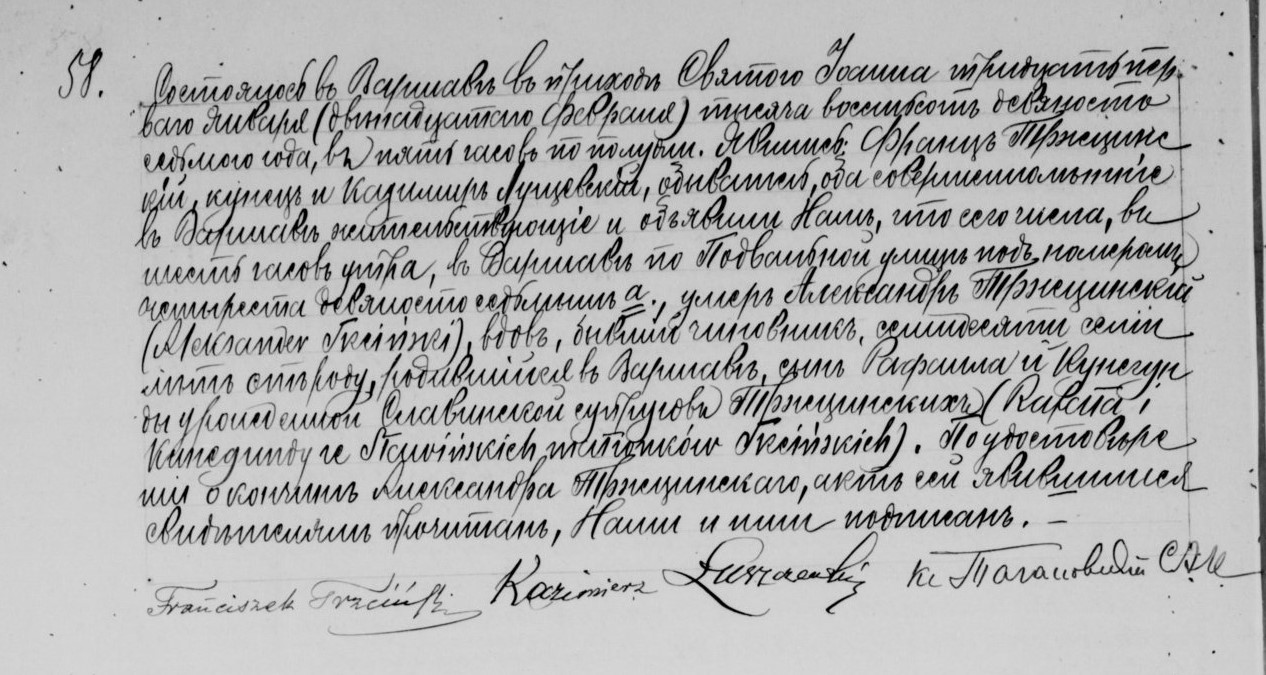 58. Состоялось въ Варшавѣ въ приходѣ Святого Іоанна тридцать пер-
ваго Января (двѣнадцатого Февраля) тысяча восемьсотъ девяносто
седьмого года, въ пять часовъ по полудни. Явились: Францъ Тржцинс
кій, купецъ и Казимиръ Лущевскій, обыватель, оба совершеннолѣтніе
въ Варшавѣ жительствующіе и объявили Намъ, что сего числа, въ
шесть часовъ утра, въ Варшавѣ по Подвальной улицѣ подъ номеромъ
четыреста девяносто седьмымъ а., умеръ Александръ Тржцинскій
(Aleksander Trciński), вдовъ, бывшій чиновникъ, семидесяти семи
лѣтъ отъ роду, родившійся въ Варшавѣ, сынъ Рафаила и Кунегун
ды урожденной Славинской супруговъ Тржцинскихъ (Rafała i
Kunegundy ze Sławińskich małżonków Trcińskich). По удостовѣре
ніи о кончинѣ Александра Тржцинскаго, актъ сей явившимся
свидѣтелямъ прочитанъ, Нами и ими подписанъ. –
Franciszek Trzciński Kazimierz Luszczewski Кс